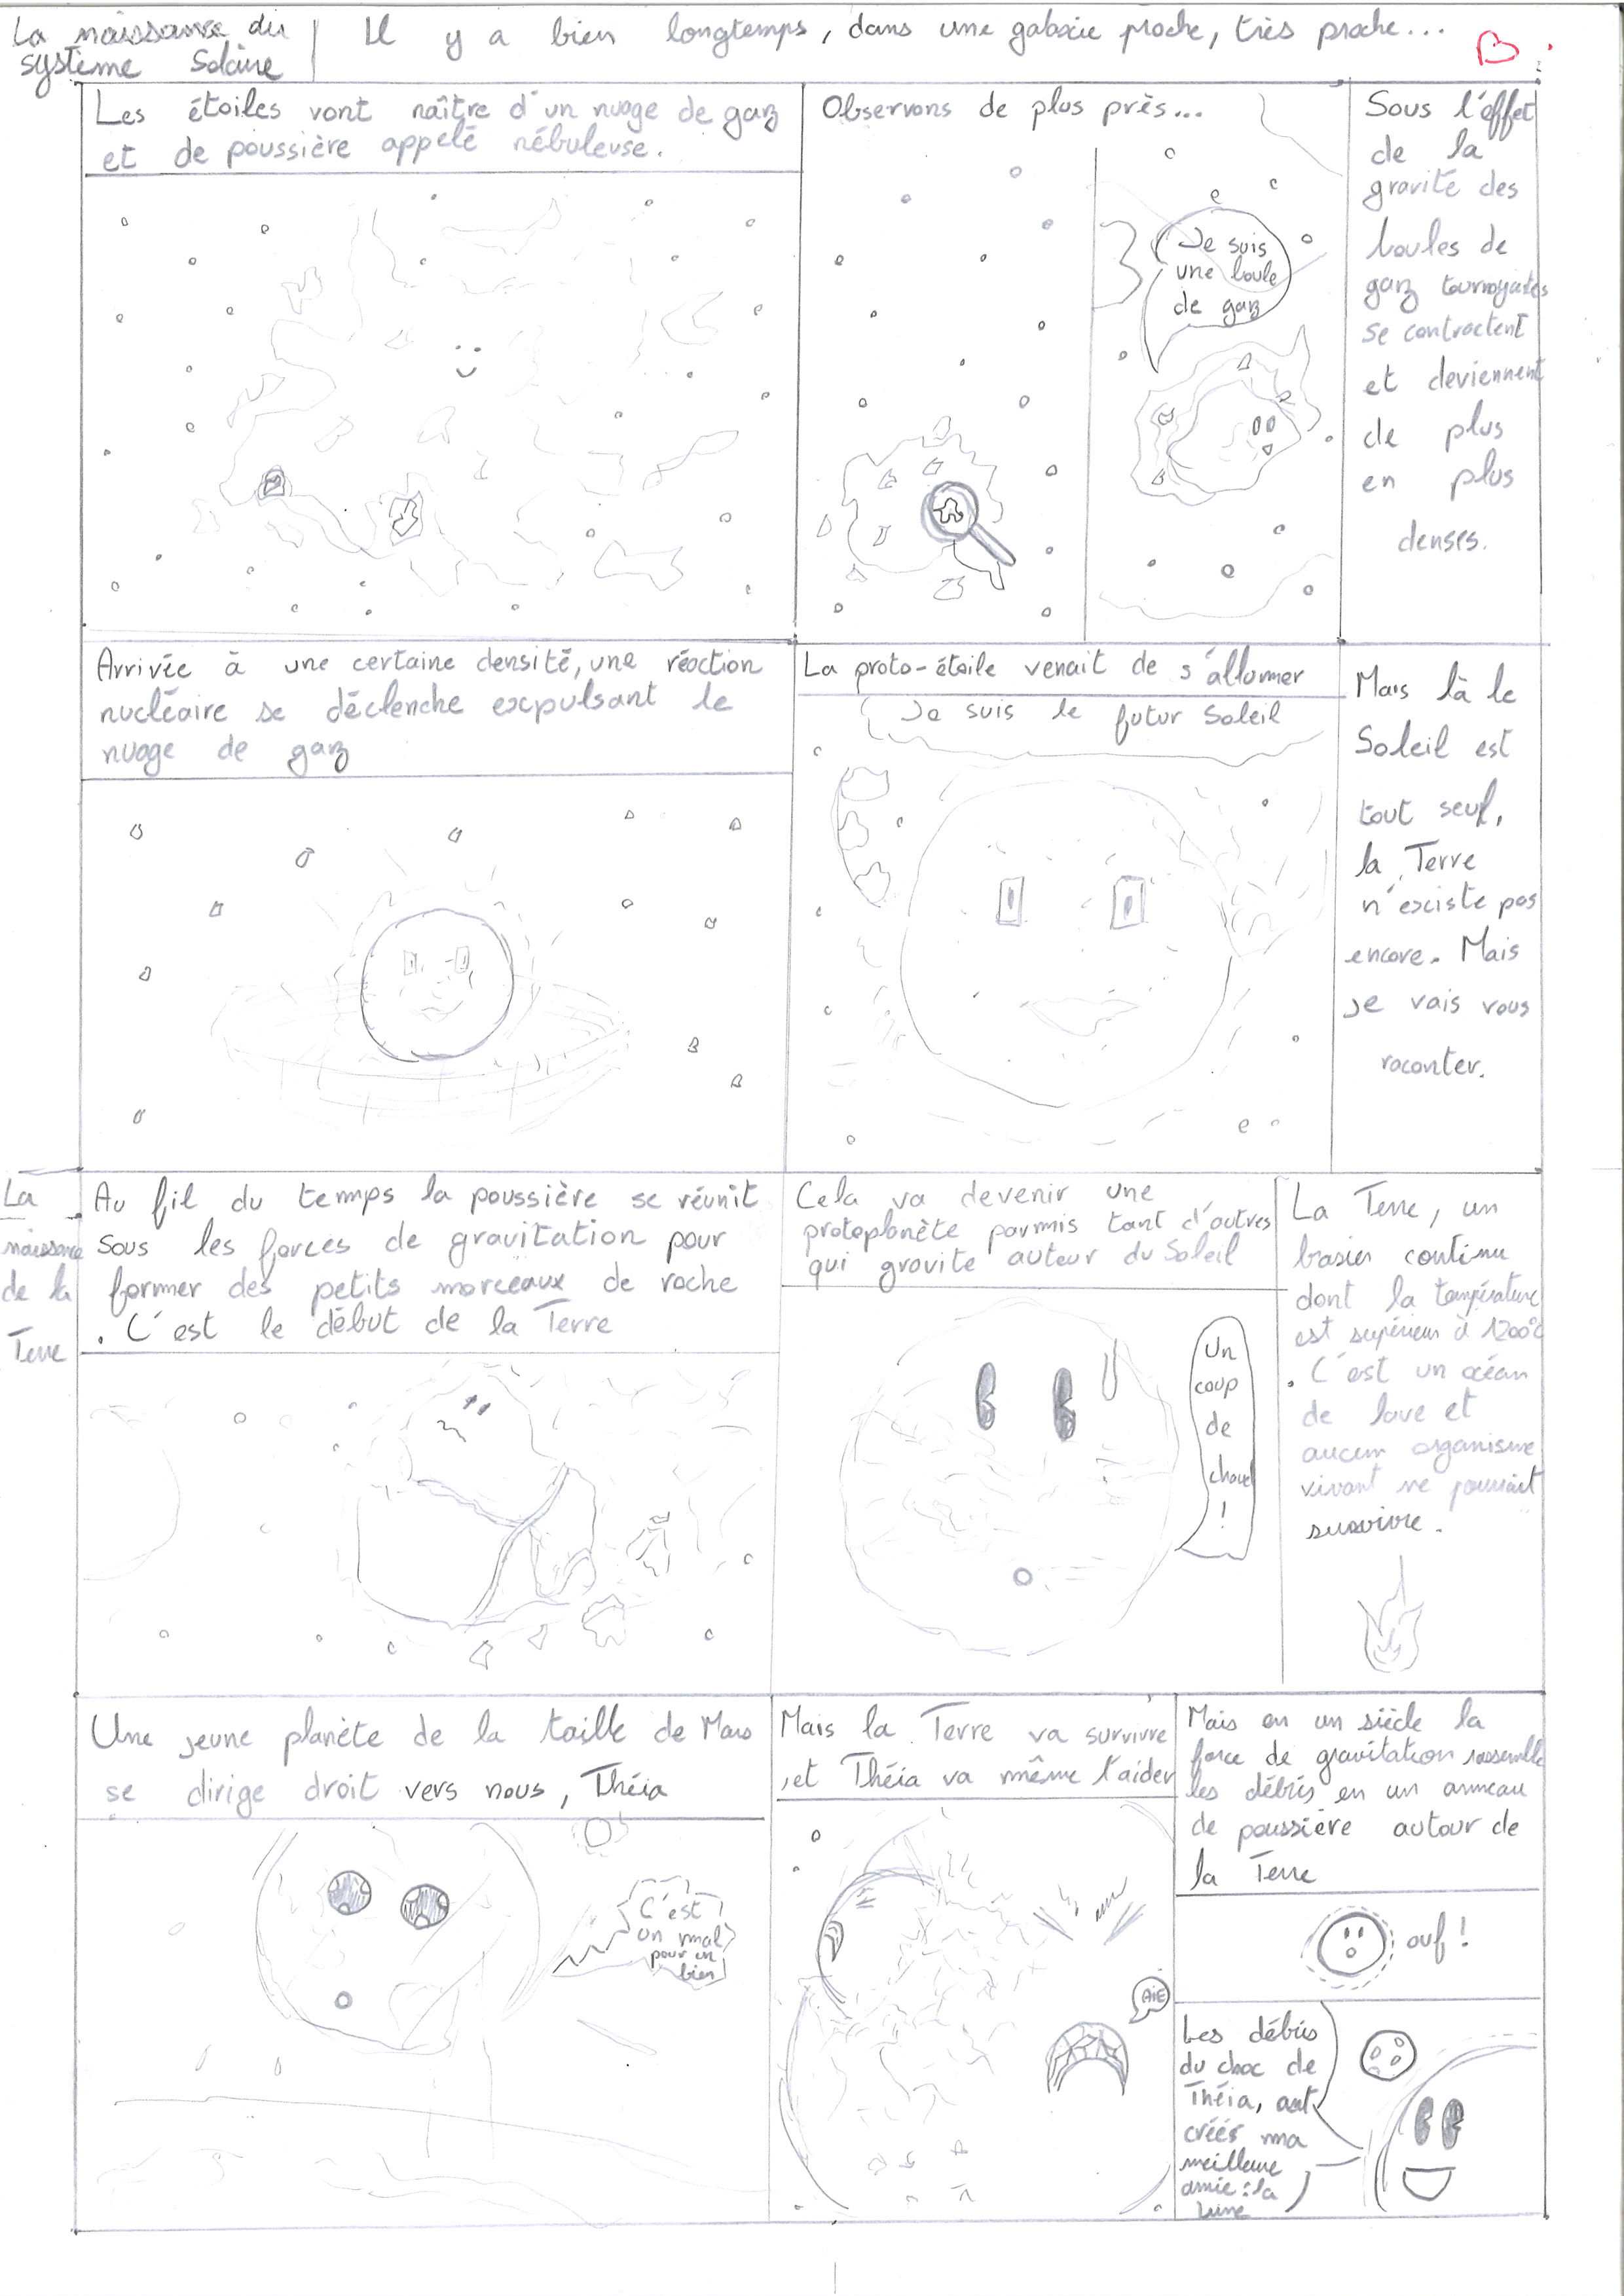 La naissance du
système Solaire
Il y a bien longtemps, dans une galaxie proche, très proche...
Les étoiles vont naître d'un nuage de gaz
et de poussière appelé nébuleuse.
Observons de plus près...
Je suis
une boule
de gaz
Sous l'effet
de la
gravité des
boules de
gaz tournoyantes
se contractent
et deviennent
de plus
en plus
denses.
Arrivée à une certaine densité, une réaction
nucléaire se déclenche expulsant le
nuage de gaz
La proto-étoile venait de s'allumer
Je suis le futur Soleil
Mais là le
Soleil est
tout seul,
la Terre
n'existe pas
encore. Mais
je vais vous
raconter.
La
naissance
de la
Terre
Au fil du temps la poussière se réunit
sous les forces de gravitation pour
former des petits morceaux de roche
. C'est le début de la Terre
Cela va devenir une
protoplanète parmis tant d'autres
qui gravite autour du Soleil
Un
coup
de
chaud
!
La Terre, un
brasier continu
dont la température
est supérieur à 1200°C
. C'est un océan
de lave et
aucun organisme
vivant ne pourrait
survivre.
Une jeune planète de la taille de Mars
se dirige droit vers nous, Théia
C'est
un mal
pour un
bien
Mais la Terre va survivre
, et Théia va même l'aider
AÏE
Mais en un siècle la
force de gravitation rassemble
les débris en un anneau
de poussière autour de
la Terre
ouf !
Les débris
du choc de
Théia, ont
créés ma
meilleure
amie : la
Lune